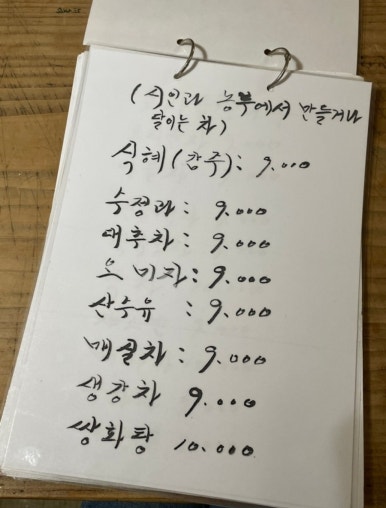 (시인과 농부에서 만들거나
달이는 차)
식혜(감주): 9.000
수정과: 9.000
대추차: 9.000
오미차: 9.000
산수유: 9.000
매실차: 9.000
생강차 9.000
쌍화탕 10.000